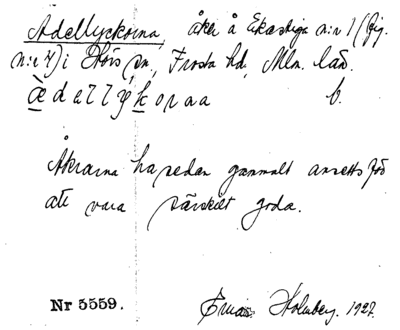 Adellyckorna, åker å Ekastiga n:r 1 (Gj.
n:r 4) i Hörs sn, Frosta hd, Mlm. län.
ædallykorna b.
Åkrarna ha sedan gammalt ansetts för
att vara särskilt goda.
Nr 5559. Holmberg. 1927.